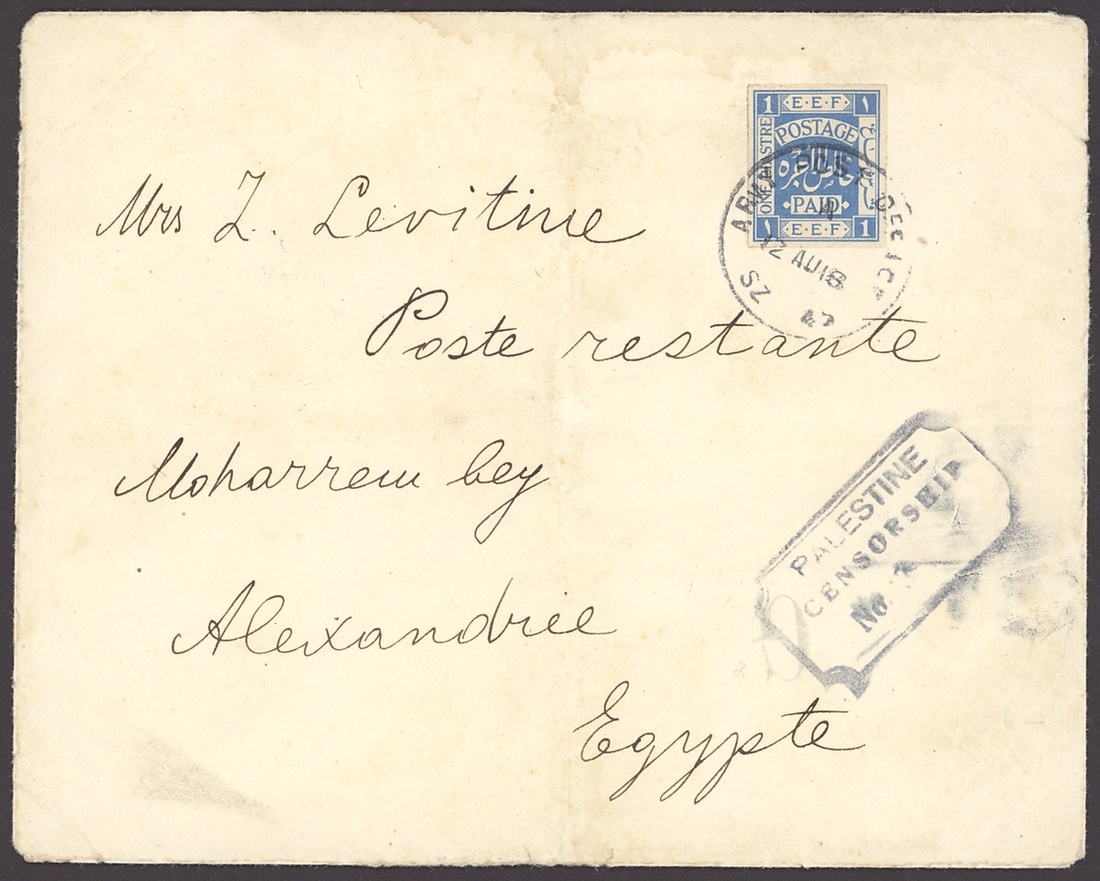 1 E·E·F ١
POSTAGE
ONE PIASTRE
خالص اجره
PAID
١ E·E·F 1
ARMY POST OFFICE
A
12 AU 18
SZ 45
Mrs Z. Levitine
Poste restante
Moharrem bey
Alexandrie
Egypte
PALESTINE
CENSORSHIP
No.